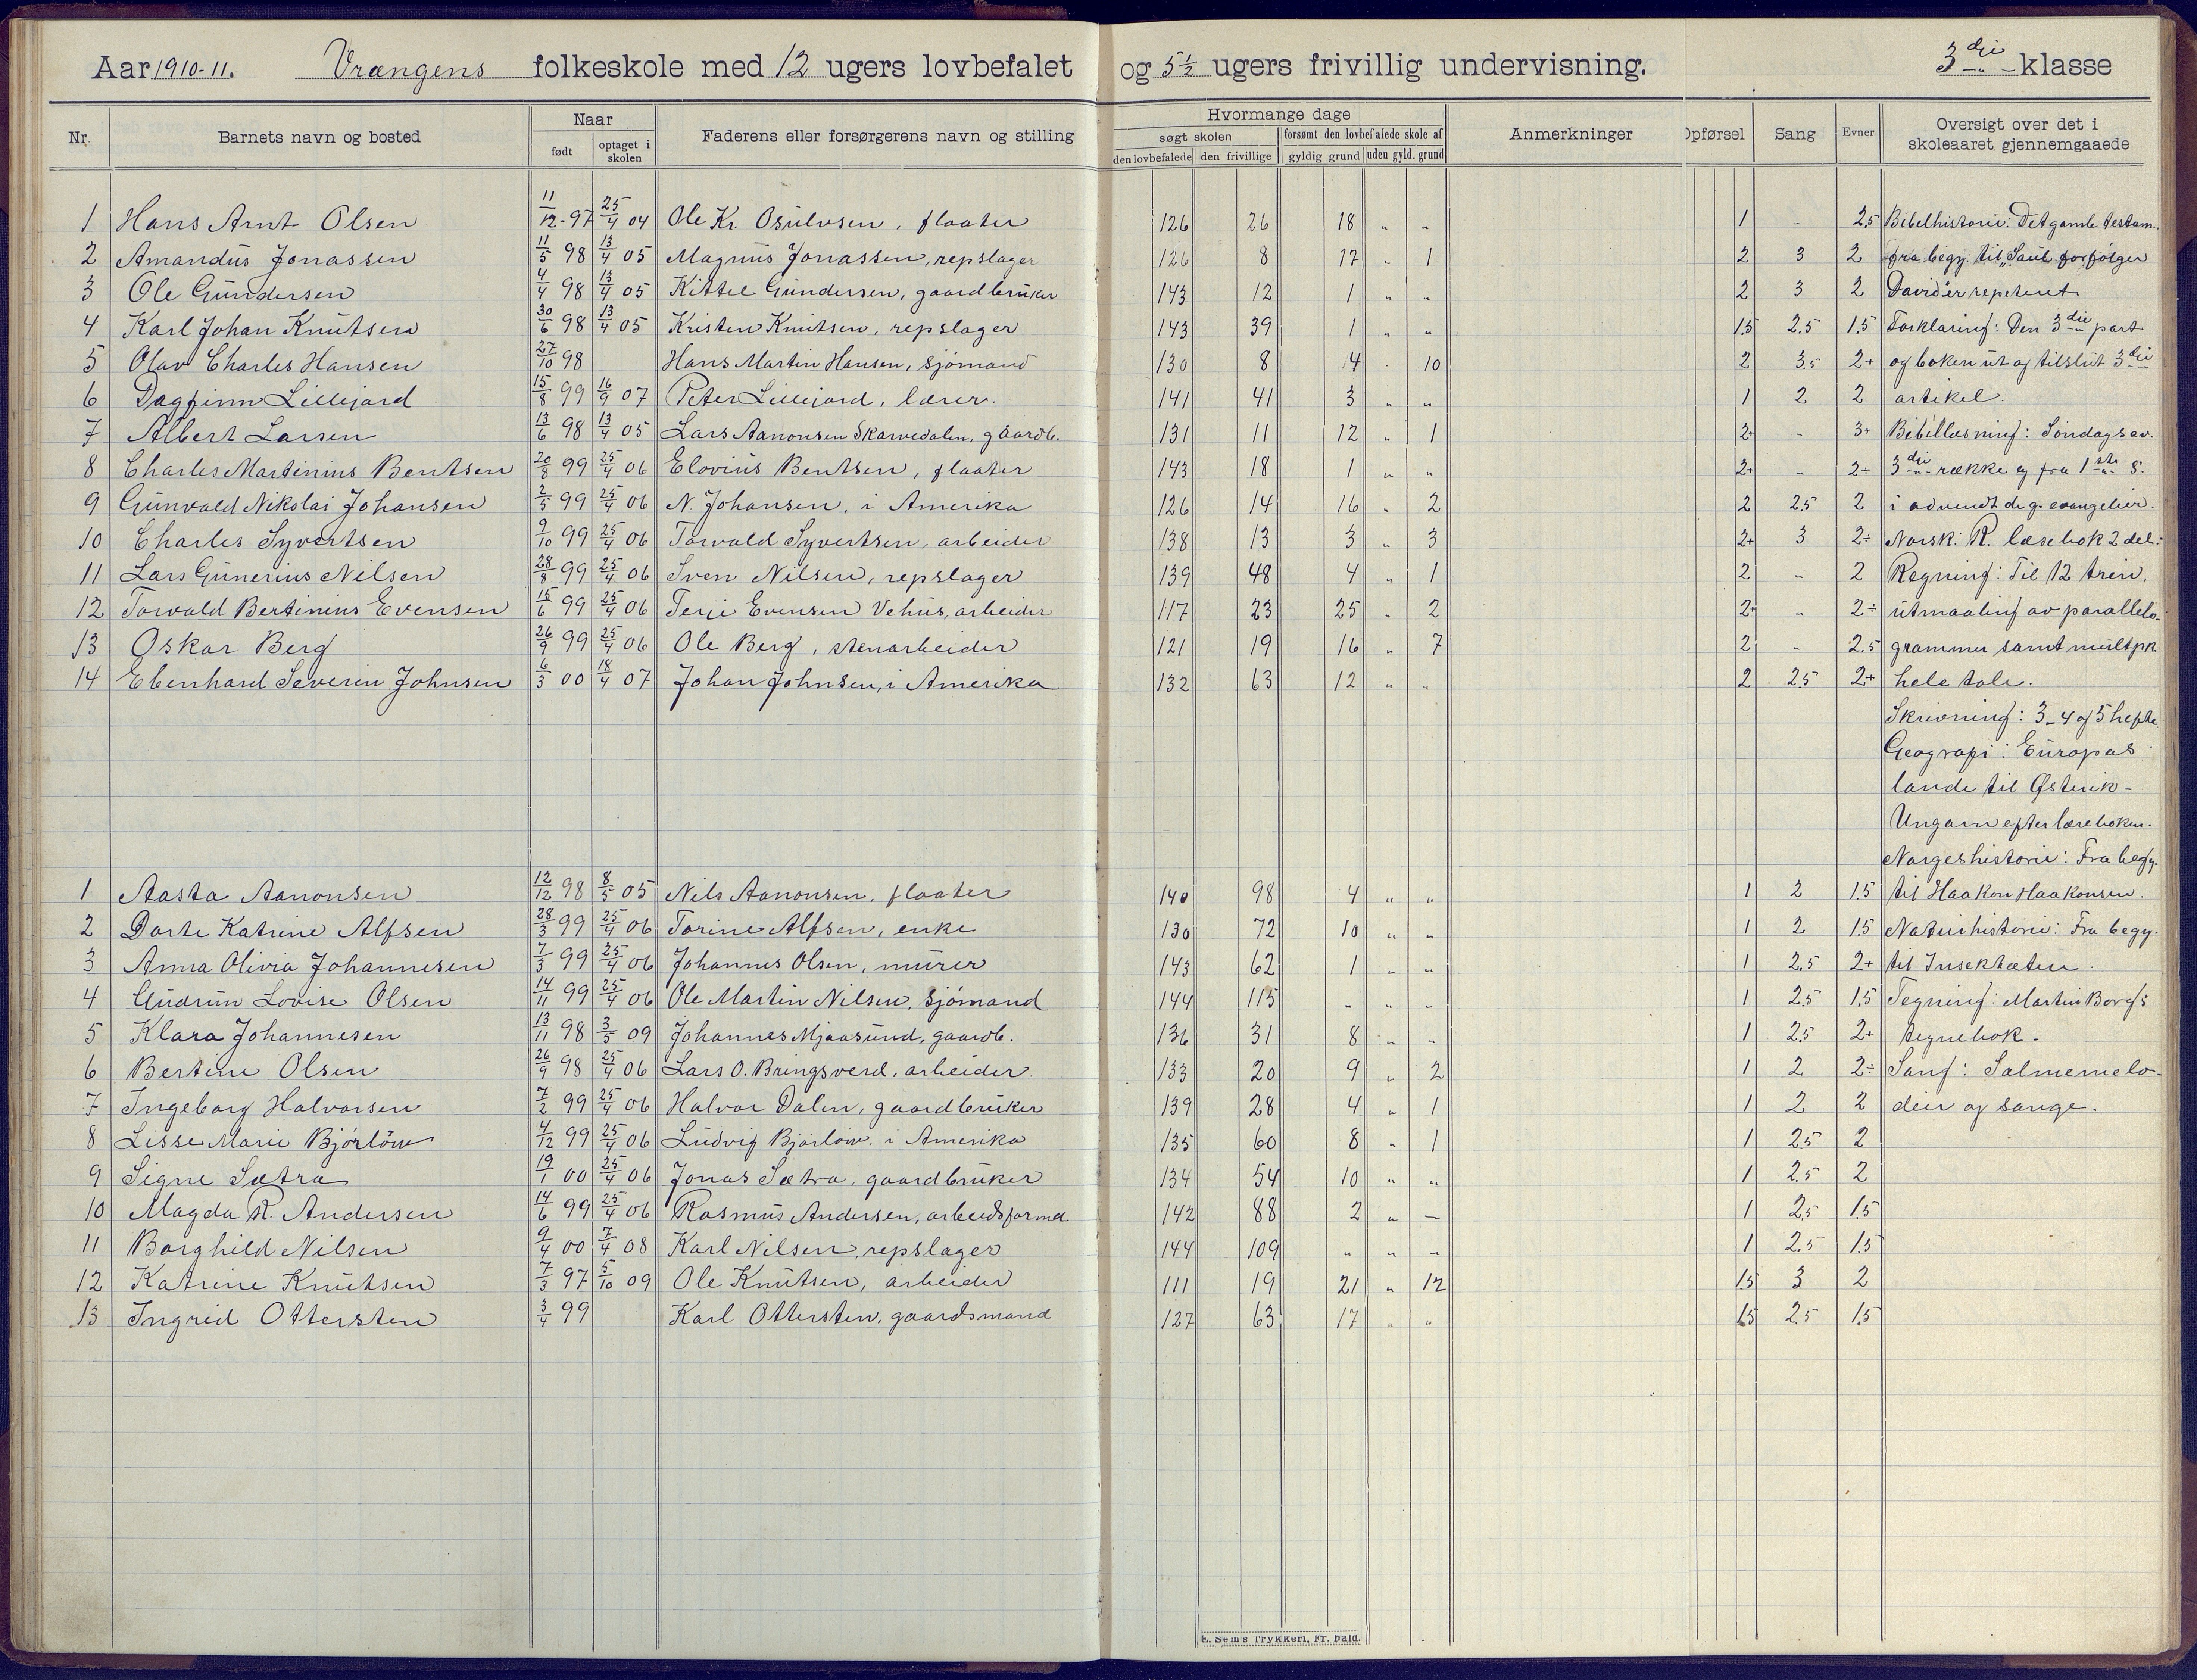 Aar 1910-11. Vrangens folkeskole med 12 ugers lovbefalet og 5 1/2 ugers frivillig undervisning. 3die klasse
Nr. Barnets navn og bosted Naar født optaget i skolen Faderens eller forsørgerens navn og stilling Hvormange dage søgt skolen den lovbefalede den frivillige forsømt den lovbefalede skole af gyldig grund uden gyld. grund Anmerkninger Opførsel Sang Evner Oversigt over det i skoleaaret gjennemgaaede
1 Hans Arnt Olsen 11/12-97 25/4 04 Ole Kr. Osulvsen, flaater 126 26 18 " " 1 - 2.5 Bibelhistorie: Det gamle testam.
2 Amandus Jonassen 11/5 98 13/4 05 Magnus Jonassen, repslager 126 8 17 " 1 2 3 2 fra begy. til "Saul forfølger
3 Ole Gundersen 4/4 98 13/4 05 Kittel Gundersen, gaardbruker 143 12 1 " " 2 3 2 David" er repeteret
4 Karl Johan Knutsen 30/6 98 13/4 05 Kristen Knutsen, repslager 143 39 1 " " 1.5 2.5 1.5 Forklaring: Den 3die part
5 Olav Charles Hansen 27/10 98 Hans Martin Hansen, sjømand 130 8 4 " 10 2 3.5 2+ og boken ut og tilslut 3die
6 Dagfinn Lillejord 15/8 99 16/9 07 Peter Lillejord, lærer. 141 41 3 " " 1 2 2 artikel.
7 Albert Larsen 13/6 98 13/4 05 Lars Aanonsen Skarvedalen, gaardb. 131 11 12 " 1 2+ - 3+ Bibellæsning: Søndags ev.
8 Charles Martinius Bentsen 20/8 99 25/4 06 Elovius Bentsen, flaater 143 18 1 " " 2+ - 2÷ 3die række og fra 1ste s.
9 Gunvald Nikolai Johansen 2/5 99 25/4 06 N. Johansen, i Amerika 126 14 16 " 2 2 2.5 2 i advendt de g. evangelier.
10 Charles Syvertsen 9/10 99 25/4 06 Torvald Syvertsen, arbeider 138 13 3 " 3 2+ 3 2÷ Norsk: R. læsebok 2 del.
11 Lars Gunerius Nilsen 28/8 99 25/4 06 Sven Nilsen, repslager 139 48 4 " 1 2 - 2 Regning: Til 12 trin,
12 Torvald Bertinius Evensen 15/6 99 25/4 06 Terje Evensen Vehus, arbeider 117 23 25 " 2 2+ " 2÷ utmaaling av parallelo-
13 Oskar Berg 26/9 99 25/4 06 Ole Berg, stenarbeider 121 19 16 " 7 2 - 2.5 grammer samt multpk
14 Ebenhard Severin Johnsen 6/3 00 18/4 07 Johan Johnsen, i Amerika 132 63 12 " " 2 2.5 2+ hele tale.
Skrivning: 3-4 og 5 hefte.
Geografi: Europas
lande til Østerik-
Ungarn efter læreboken.
Norgeshistorie: Fra begy.
1 Aasta Aanonsen 12/12 98 8/5 05 Nils Aanonsen, flaater 140 98 4 " " 1 2 1.5 til Haakon Haakonsen.
2 Dorte Katrine Alfsen 28/3 99 25/4 06 Torine Alfsen, enke 130 72 10 " " 1 2 1.5 Naturhistorie: Fra begy.
3 Anna Olivia Johannesen 7/3 99 25/4 06 Johannes Olsen, murer 143 62 1 " " 1 2.5 2+ til Insektæter.
4 Gudrun Lovise Olsen 14/11 99 25/4 06 Ole Martin Nilsen, sjømand 144 115 " " " 1 2.5 1.5 Tegning: Martin Borgs
5 Klara Johannesen 13/11 98 3/5 09 Johannes Mjaasund, gaardb. 136 31 8 " " 1 2.5 2+ tegnebok.
6 Bertine Olsen 26/9 98 25/4 06 Lars O. Bringsverd, arbeider. 133 20 9 " 2 1 2 2÷ Sang: Salmemelo-
7 Ingeborg Halvorsen 7/2 99 25/4 06 Halvor Dalen, gaardbruker 139 28 4 " 1 1 2 2 dier og sange.
8 Lisse Marie Bjørløw 4/12 99 25/4 06 Ludvig Bjørløw, i Amerika 135 60 8 " 1 1 2.5 2
9 Signe Sætra 19/1 00 25/4 06 Jonas Sætra, gaardbruker 134 54 10 " " 1 2.5 2
10 Magda R. Andersen 14/6 99 25/4 06 Rasmus Andersen, arbeidsformd 142 88 2 " - 1 2.5 1.5
11 Borghild Nilsen 9/4 00 7/4 08 Karl Nilsen, repslager 144 109 " " " 1 2.5 1.5
12 Katrine Knutsen 7/3 97 5/10 09 Ole Knutsen, arbeider 111 19 21 " 12 1.5 3 2
13 Ingrid Ottersten 3/4 99 Karl Ottersten, gaardsmand 127 63 17 " " 1.5 2.5 1.5
E. Sem's Trykkeri, Fr.hald.